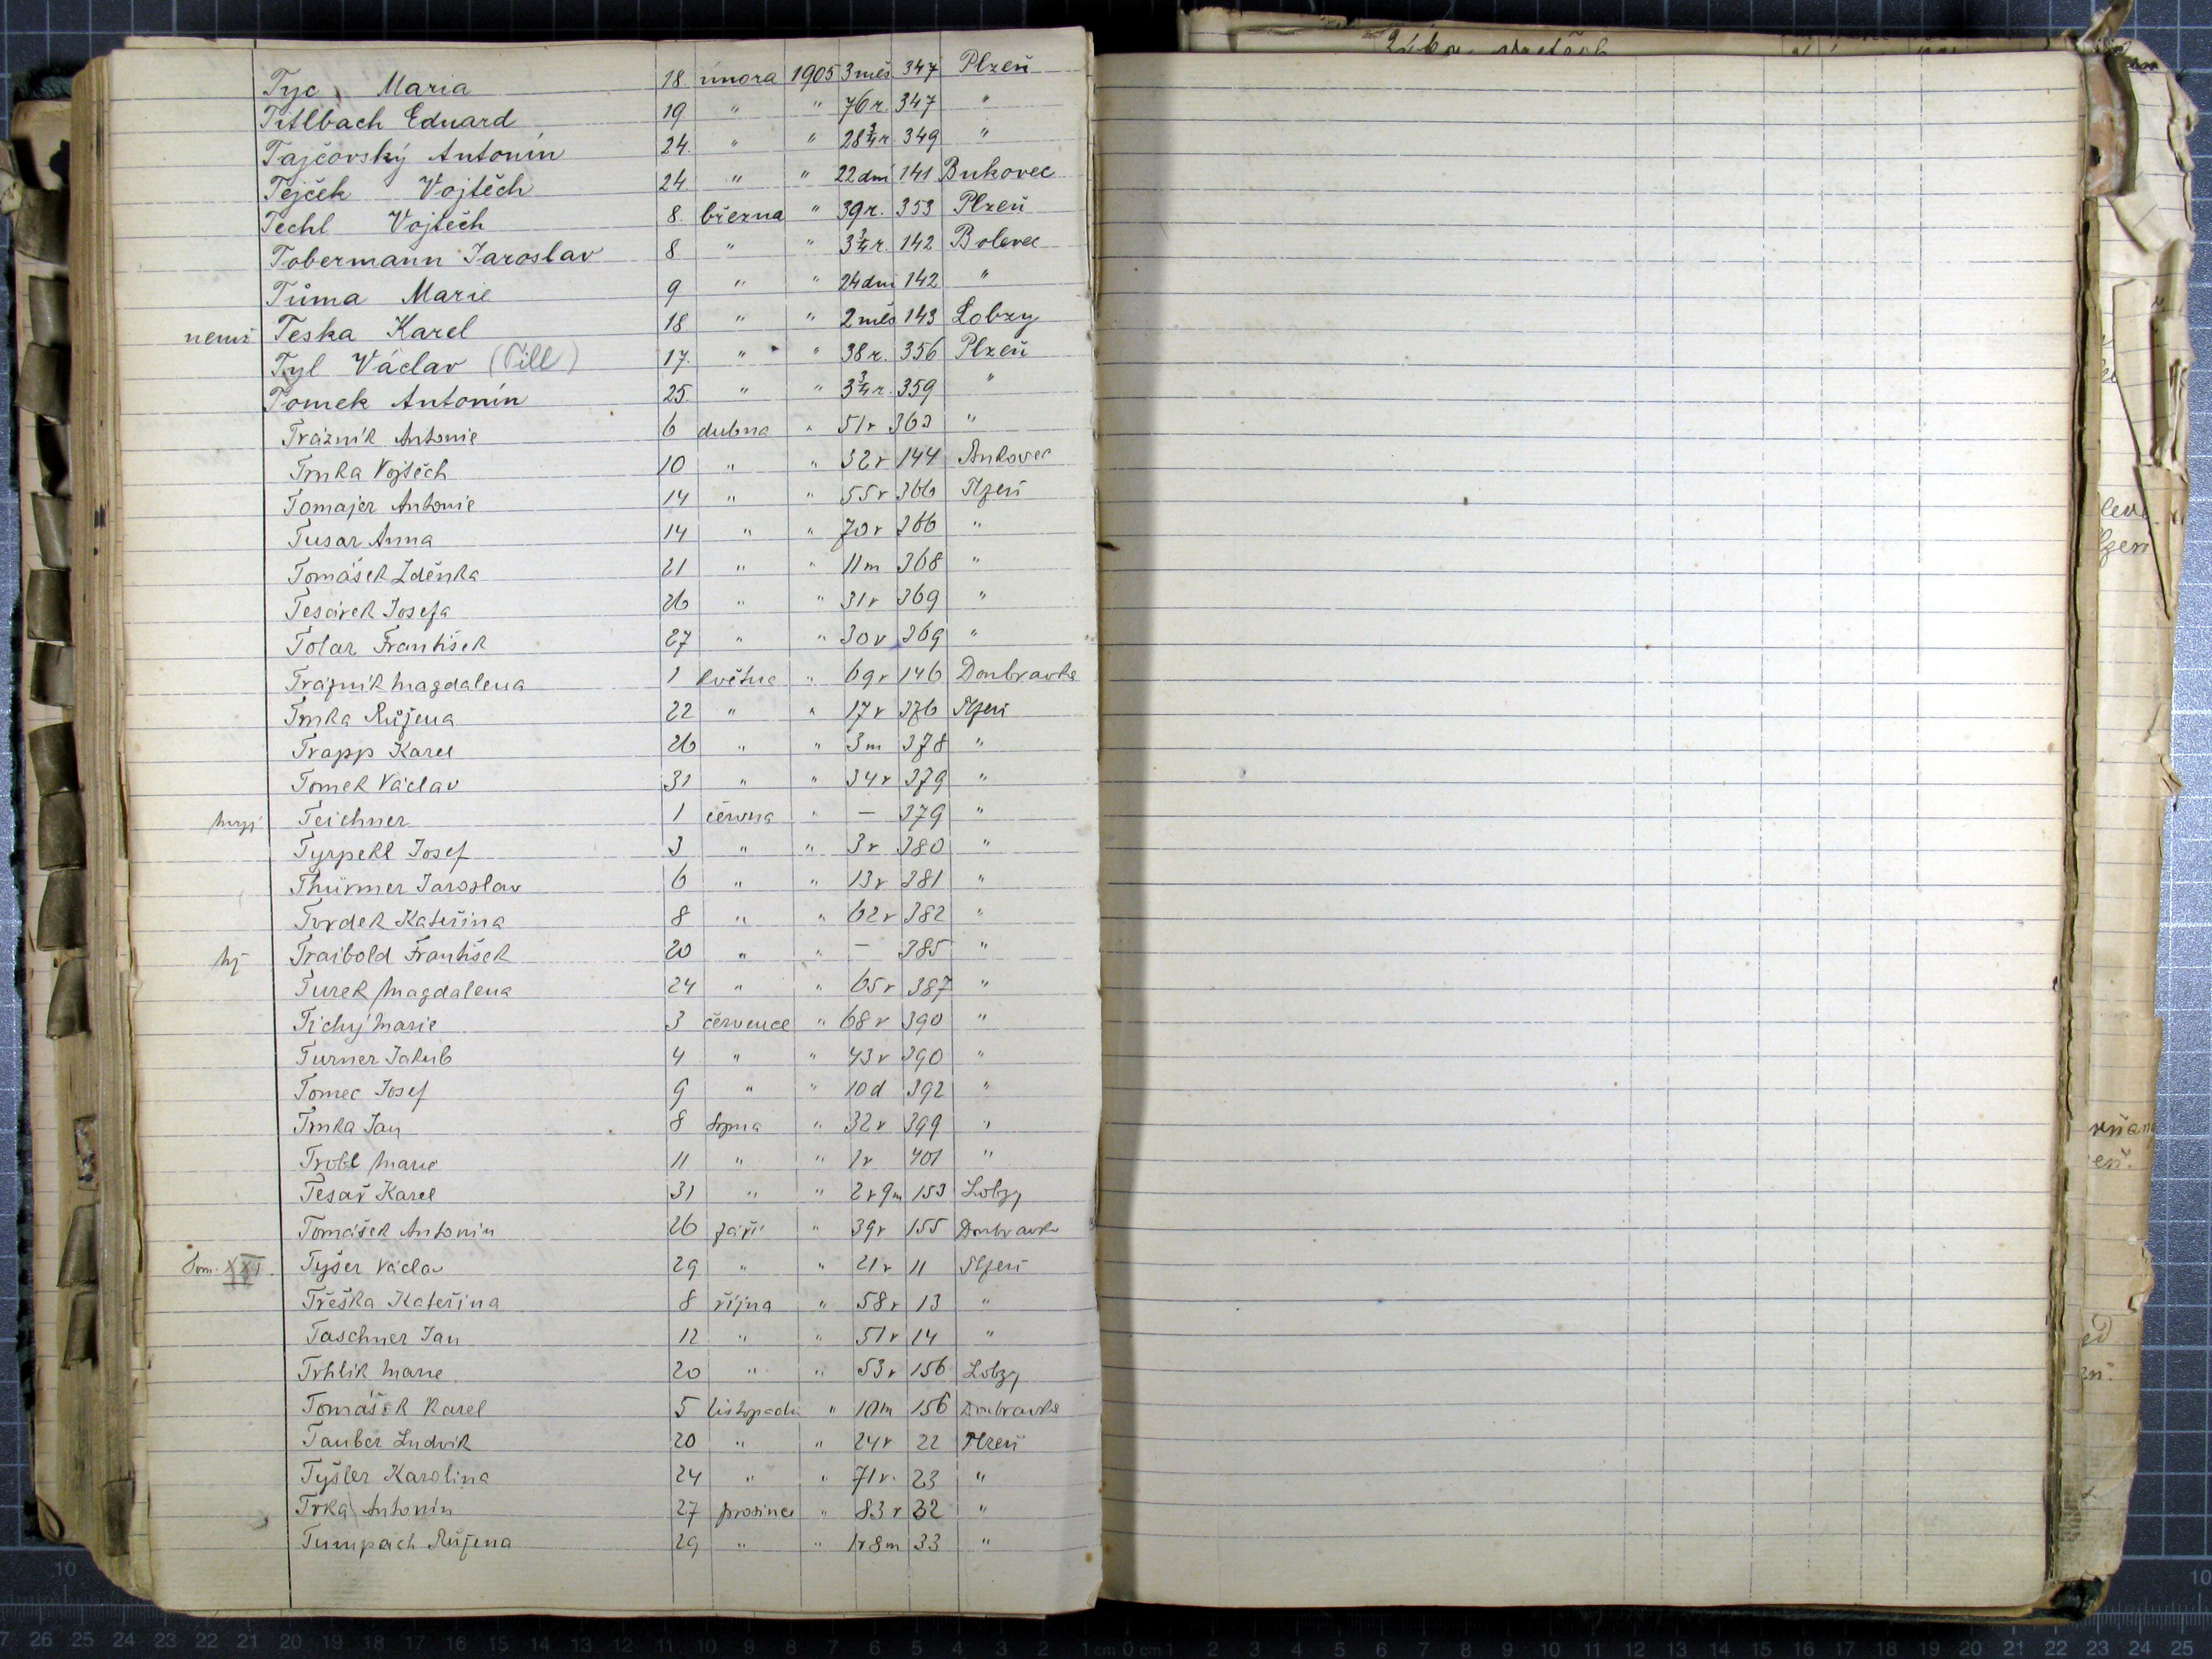 Tyc Maria 18. února 1905 3 měs 347 Plzeň
Titlbach Eduard 19 " " 76 r. 347 "
Tajčovský Antonín 24. " " 28 3/4 r. 349 "
Tejček Vojtěch 24. " " 22 dní 141 Bukovec
Techl Vojtěch 8. března " 39 r. 353 Plzeň
Tobermann Jaroslav 8 " " 3 3/4 r. 142 Bolevec
Tůma Marie 9 " " 24 dní 142 "
není Teska Karel 18 " " 2 měs 143 Lobzy
Tyl Václav (Till) 17. " " 38 r. 356 Plzeň
Tomek Antonín 25. " " 3 3/4 r. 359 "
Trázník Antonie 6 dubna " 51 r 363 "
Trnka Vojtěch 10 " " 32 r 144 Bukovec
Tomajer Antonie 14 " " 55 r 366 Plzeň
Tusar Anna 14 " " 70 r 366 "
Tomášek Zděnka 21 " " 11 m 368 "
Tesárek Josefa 26 " " 31 r 369 "
Tolar František 27 " " 30 r 369 "
Trázník Magdalena 1 května " 69 r 146 Doubravka
Trnka Růžena 22 " " 17 r 376 Plzeň
Trapp Karel 26 " " 3 m 378 "
Tomek Václav 31 " " 34 r 379 "
Teichner 1 června " — 379 "
Tyrpekl Josef 3 " " 3 r 380 "
Thürmer Jaroslav 6 " " 13 r 381 "
Tvrdek Kateřina 8 " " 62 r 382 "
Traibold František 20 " " — 385 "
Turek Magdalena 24 " " 65 r 387 "
Tichý Marie 3 července " 68 r 390 "
Turner Jakub 4 " " 43 r 390 "
Tomec Josef 9 " " 10 d 392 "
Trnka Jan 8 srpna " 32 r 399 "
Trobl Marie 11 " " 1 r 401 "
Tesař Karel 31 " " 2 r 9 m 153 Lobzy
Tomášek Antonín 26 září " 39 r 155 Doubravka
Tom. XXI. Tyšer Václav 29 " " 21 r 11 Plzeň
Třeška Kateřina 8 října " 58 r 13 "
Taschner Jan 12 " " 51 r 14 "
Trhlik Marie 20 " " 53 r 156 Lobzy
Tomášek Karel 5 listopadu " 10 m 156 Doubravka
Tauber Ludvik 20 " " 24 r 22 Plzeň
Tyšler Karolina 24 " " 71 r. 23 "
Trka Antonín 27 prosince " 83 r 32 "
Tumpach Růžena 29 " " 1 r 8 m 33 "